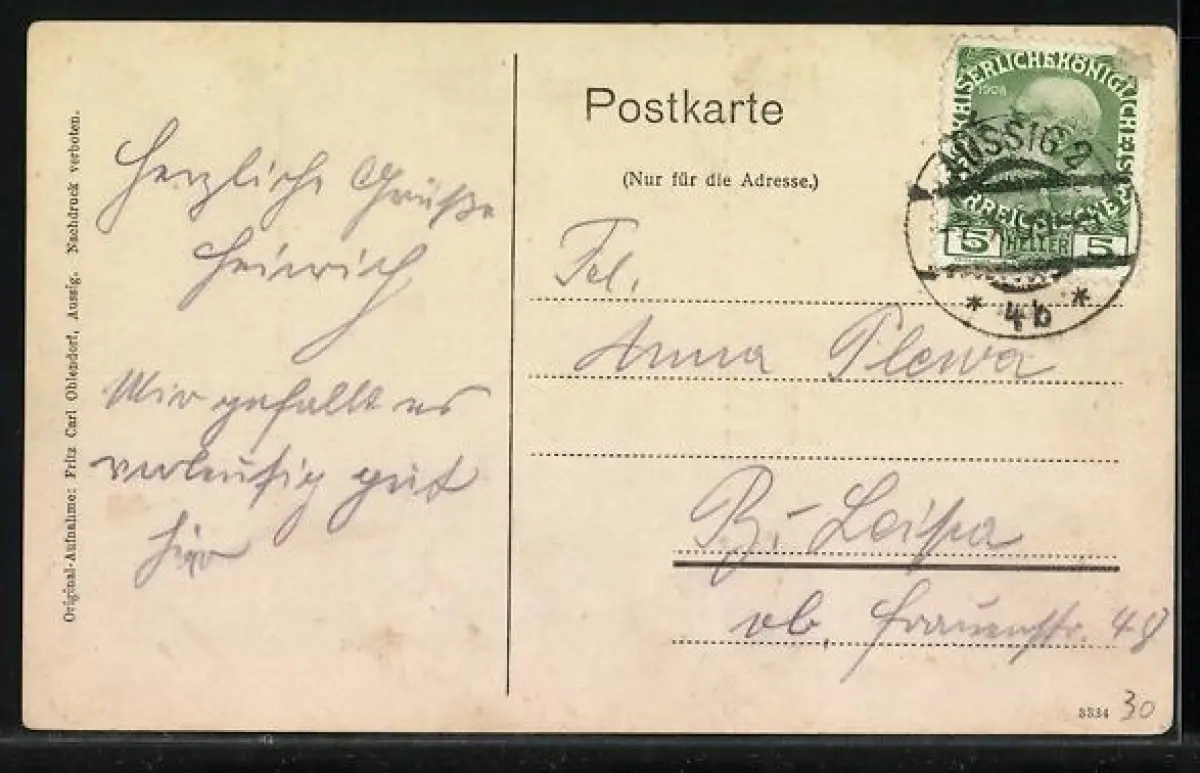 Original-Aufnahme: Fritz Carl Ohlendorf, Aussig. Nachdruck verboten.
Herzliche Grüße
Heinrich
Mir gefällt es
vorläufig gut
hier
Postkarte
(Nur für die Adresse.)
Frl.
Anna Plewa
B. Leipa
ob. Frauenstr. 48
KAISERLICHE KÖNIGLICHE
1908
5 HELLER 5
AUSSIG 2
* 4b *
3334
30